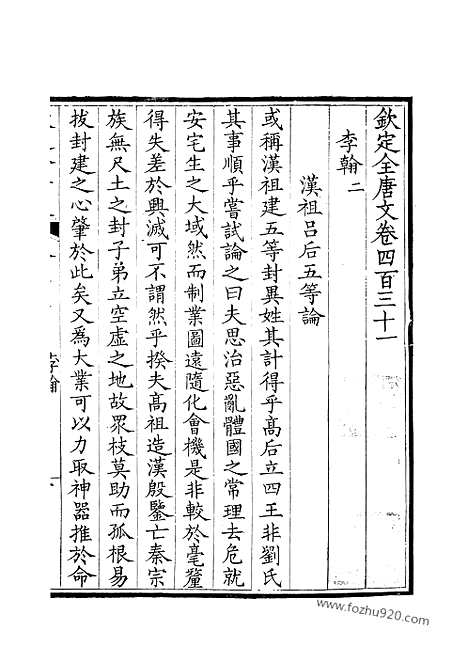 欽定全唐文卷四百三十一
李翰二
漢祖呂后五等論
或稱漢祖建五等封異姓其計得乎高后立四王非劉氏
其事順乎嘗試論之曰夫思治惡亂體國之常理去危就
安宅生之大域然而制業圖遠隨化會機是非較於毫釐
得失差於興滅可不謂然乎揆夫高祖造漢殷鑒亡秦宗
族無尺土之封子弟立空虛之地故眾枝莫助而孤根易
拔封建之心肇於此矣又爲大業可以力取神器推於命
李翰
www.fozhu920.com